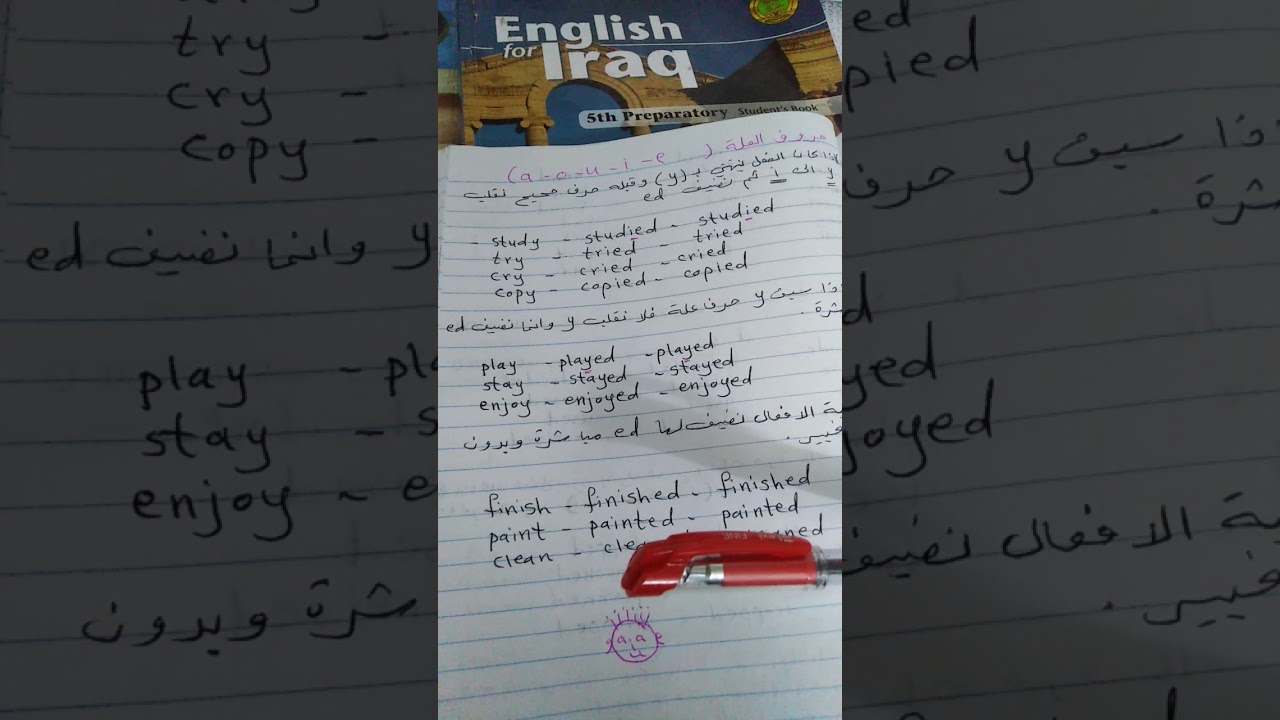 English
for
Iraq
5th Preparatory Student's Book
حروف العلة ( a - o - u - i - e )
اذا كان الفعل ينتهي بـ (y) وقبله حرف صحيح نقلب
y الى i ثم نضيف ed
- study - studied - studied
try - tried - tried
cry - cried - cried
copy - copied - copied
اذا سبق y حرف علة فلا نقلب y وانما نضيف ed
شرة .
play - played - played
stay - stayed - stayed
enjoy - enjoyed - enjoyed
ية الافعال نضيف لها ed مباشرة وبدون
غيير .
finish - finished - finished
paint - painted - painted
clean - clea ned